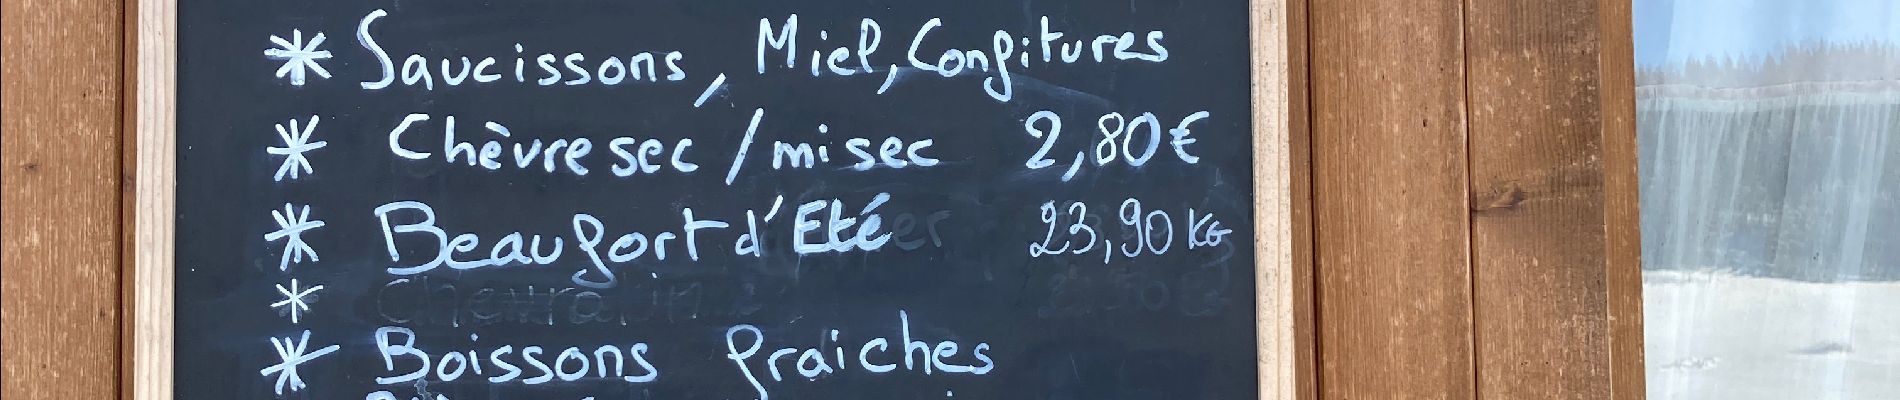 * Saucissons, Miel, Confitures
* Chèvre sec / mi sec 2,80€
* Beaufort d'Eté 23,90 KG
*
* Boissons fraiches